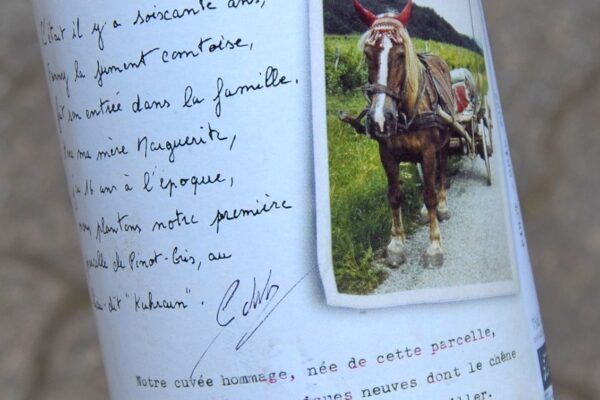 C'était il y a soixante ans,
Fanny, la jument comtoise,
fit son entrée dans la famille.
ma mère Marguerite,
j'ai 16 ans à l'époque,
nous plantons notre première
parcelle de Pinot-Gris, au
lieu-dit "Kuhrain".
Notre cuvée hommage, née de cette parcelle,
neuves dont le chêne